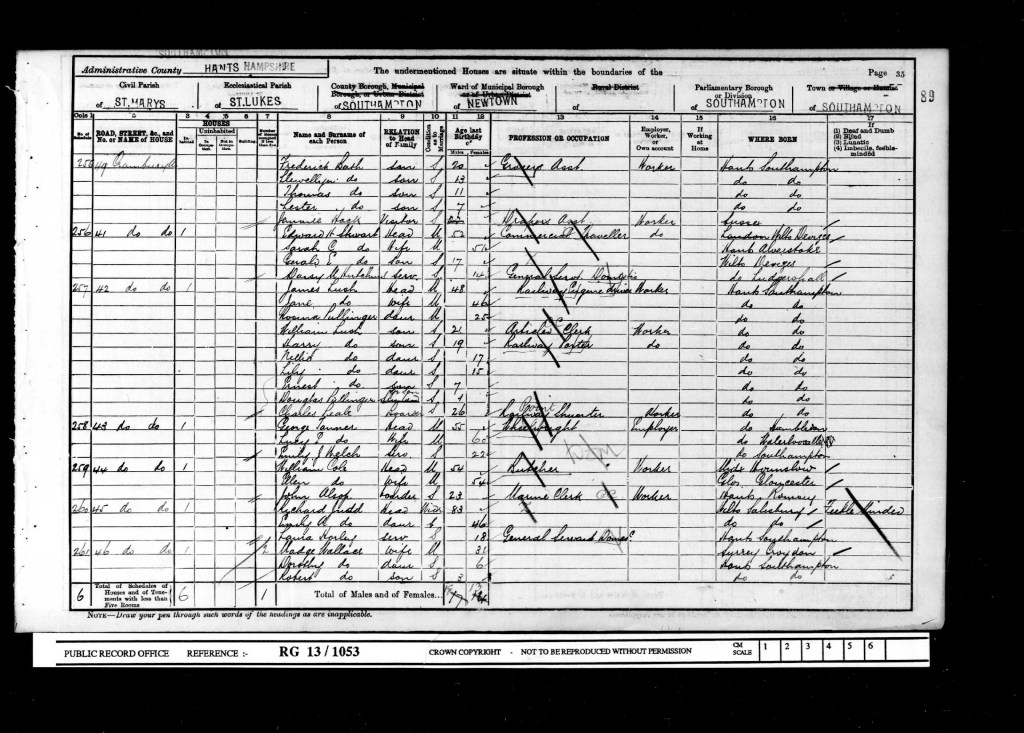 Administrative County HANTS HAMPSHIRE The undermentioned Houses are situate within the boundaries of the Page 35
Civil Parish Ecclesiastical Parish County Borough, Municipal Borough, or Urban District Ward of Municipal Borough or of Urban District Rural District Parliamentary Borough or Division Town or Village or Hamlet
of ST. MARYS of ST. LUKES of SOUTHAMPTON of NEWTOWN of SOUTHAMPTON of SOUTHAMPTON
89
Cols 1 2 3 4 5 6 7 8 9 10 11 12 13 14 15 16 17
ROAD, STREET, &c., and No. or NAME of HOUSE HOUSES Inhabited Uninhabited In Occupation Not in Occupation Building Name and Surname of each Person RELATION to Head of Family Condition as to Marriage Age last Birthday of Males Females PROFESSION OR OCCUPATION Employer, Worker, or Own account If Working at Home WHERE BORN If (1) Deaf and Dumb (2) Blind (3) Lunatic (4) Imbecile, feeble-minded
Frederick Bath son S 20 Grocers Asst Worker Hants Southampton
Llewellyn do son S 13 do do
Thomas do son S 11 do do
Lester do son S 7 do do
Visitor S Drapers Asst Worker
256 41 do do 1 Edward H Stewart Head M 52 Commercial Traveller do Wilts Devizes
Sarah do Wife M 51 Hants Alverstoke
Gerald do Son S 17 Wilts Devizes
Serv. S 14 General Serv Domestic do Ludgershall
257 42 do do 1 James Lush Head M 48 Railway Engine driver Worker Hants Southampton
Jane do wife M 46 do do
Rosina Pullinger daur M 25 do do
William Lush son S 21 Articled Clerk Worker do do
Harry do son S 19 Railway Porter do do do
Nellie do daur S 17 do do
Lily do daur S 15 do do
Ernest do son S 7 do do
Douglas Pullinger S 1 do do
Charles Boarder S 26 Railway Shunter Worker do do
258 43 do do 1 George Tanner Head M 55 Wheelwright Employer do Hambledon
Lucy do Wife M 60 do Waterlooville
Emily J Welch Serv. S 22 do Southampton
259 44 do do 1 William Cole Head M 54 Butcher Worker Middx Hounslow
Ellen do Wife M 54 Glos. Gloucester
John Alsop boarder S 23 Marine Clerk Worker Hants, Romsey
260 45 do do 1 Richard Judd Head Widr 83 Wilts Salisbury Feeble Minded
Emily A. do daur S 46 do do
Laura Harley serv S 18 General Servant Domes. Hants Southampton
261 46 do do Madge Wallace Wife M 31 Surrey Croydon
Dorothy do daur S 6 Hants Southampton
Robert do son S 3 do do
6 Total of Schedules of Houses and of Tenements with less than Five Rooms 6 1 Total of Males and of Females... 17
NOTE—Draw your pen through such words of the headings as are inapplicable.
PUBLIC RECORD OFFICE REFERENCE :- RG 13/1053 CROWN COPYRIGHT - NOT TO BE REPRODUCED WITHOUT PERMISSION CM SCALE 1 2 3 4 5 6